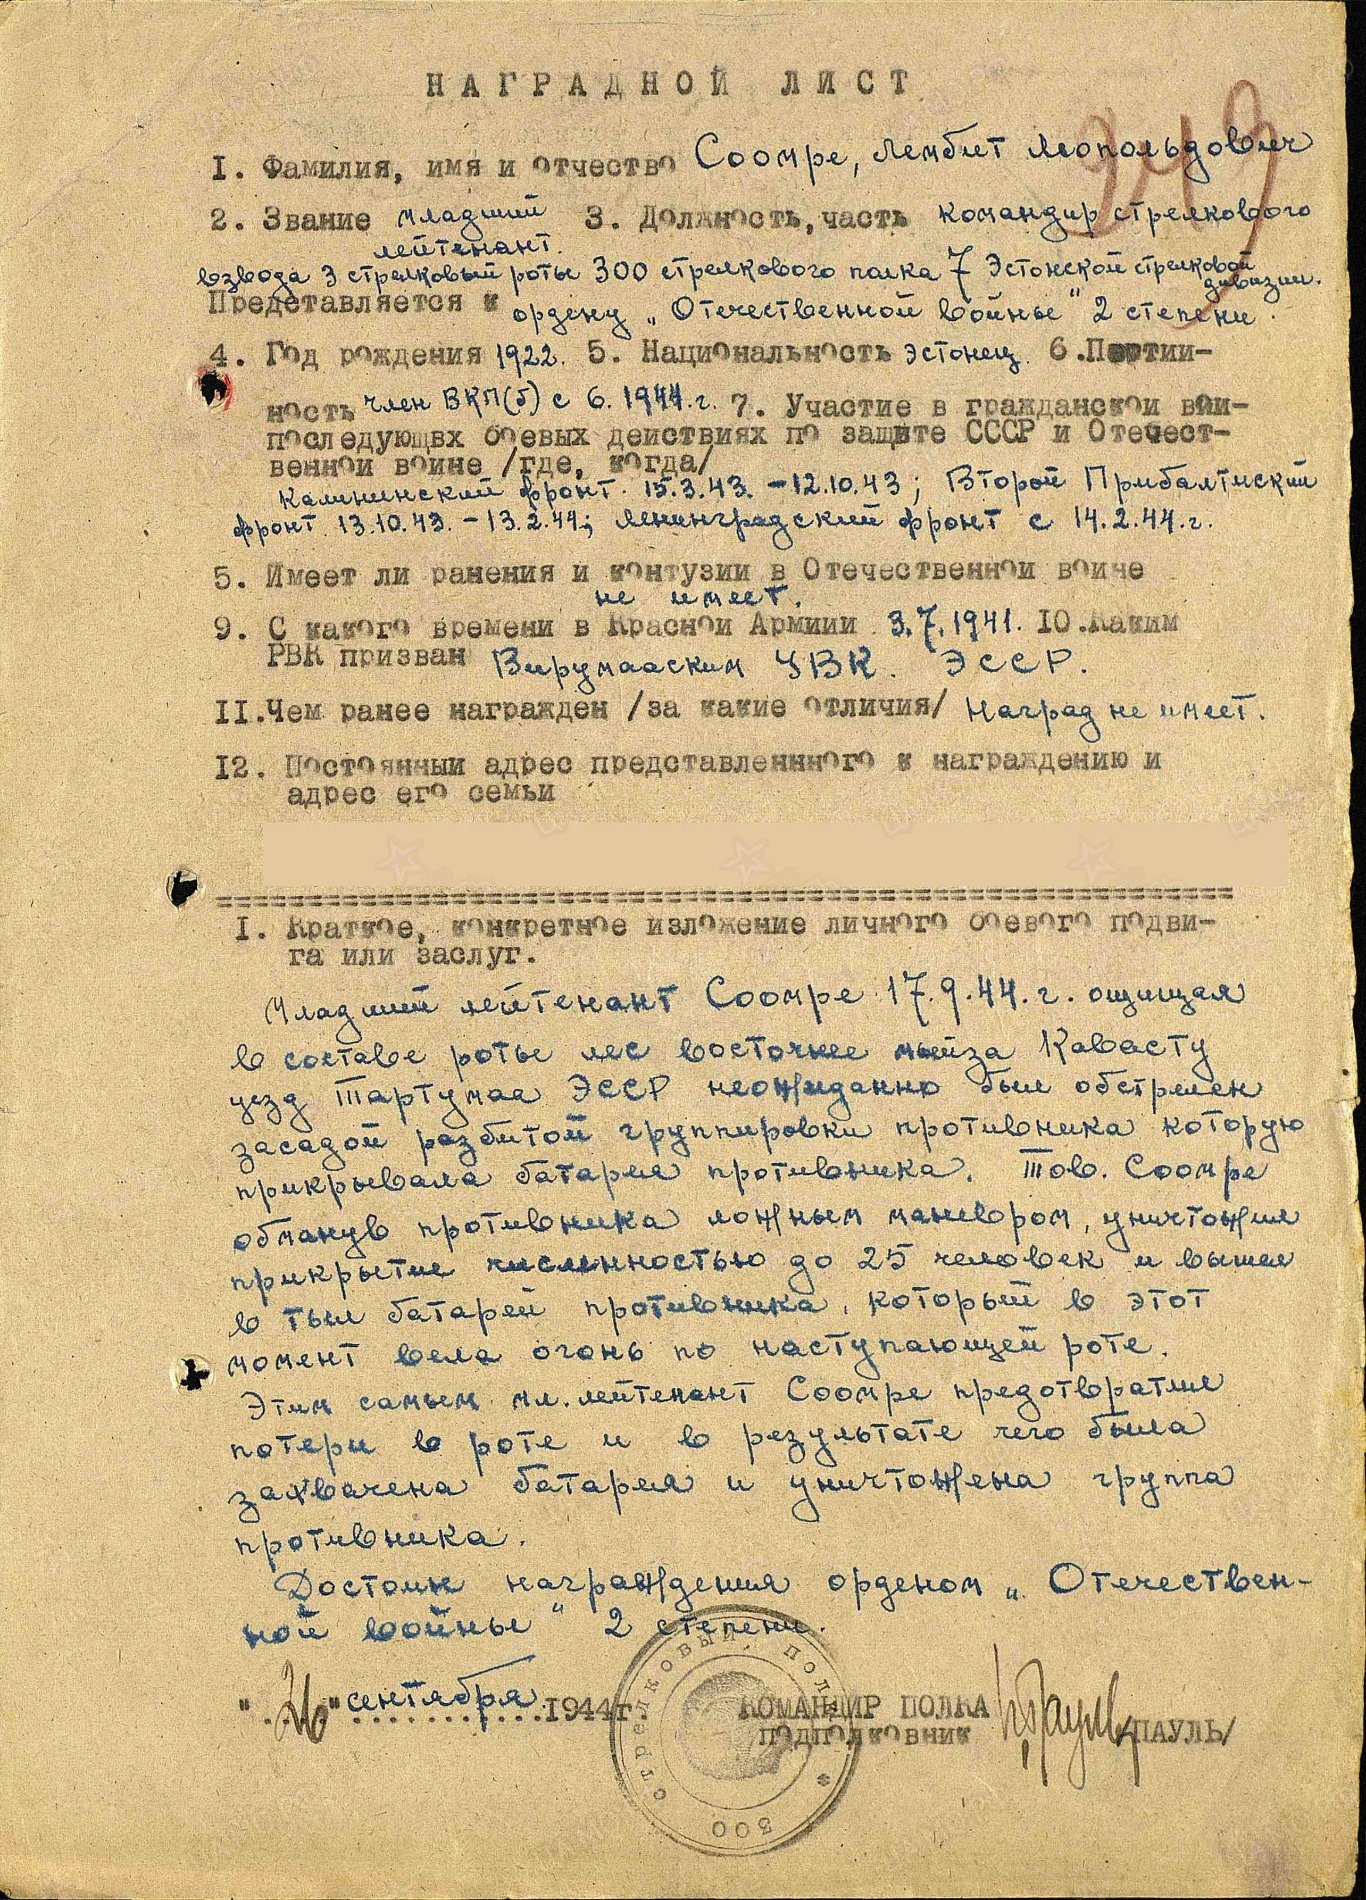 НАГРАДНОЙ ЛИСТ
243
I. Фамилия, имя и отчество Соомре, Лембит Леопольдович
2. Звание младший 3. Должность, часть командир стрелкового
лейтенант.
взвода 3 стрелковый роты 300 стрелкового полка 7 Эстонской стрелковой
дивизии.
Представляется к ордену „Отечественной войны" 2 степени.
4. Год рождения 1922. 5. Национальность эстонец. 6. Партий-
ность член ВКП(б) с 6.1944.г. 7. Участие в гражданской вои-
последующвх боевых действиях по защите СССР и Отечест-
венной войне /где, когда/
Калининский фронт. 15.3.43. - 12.10.43; Второй Прибалтиский
фронт 13.10.43. - 13.2.44; Ленинградский фронт с 14.2.44.г.
5. Имеет ли ранения и контузии в Отечественной войне
не имеет.
9. С какого времени в Красной Армиии 3.7.1941. IO. Каким
РВК призван Вирумааским УВК. ЭССР.
II. Чем ранее награжден /за какие отличия/ Наград не имеет.
I2. Постоянный адрес представленнного к награждению и
адрес его семьи
I. Краткое, конкретное изложение личного боевого подви-
га или заслуг.
Младший лейтенант Соомре 17.9.44.г. ощищая
в составе роты лес восточнее мыйза Кавасту
уезд Тартумаа ЭССР неожиданно был обстрелен
засадой разбитой группировки противника которую
прикрывала батарея противника. Тов. Соомре
обманув противника ложным маневром, уничтожил
прикрытие численностью до 25 человек и вышел
в тыл батарей противника, который в этот
момент вела огонь по наступающей роте.
Этим самым мл. лейтенант Соомре предотвратил
потери в роте и в результате чего была
захвачена батарея и уничтожена группа
противника.
Достоин награждения орденом „Отечествен-
ной войны" 2 степени.
"26" сентября 1944г.
КОМАНДИР ПОЛКА
ПОДПОЛКОВНИК /ПАУЛЬ/
300 СТРЕЛКОВЫЙ ПОЛК